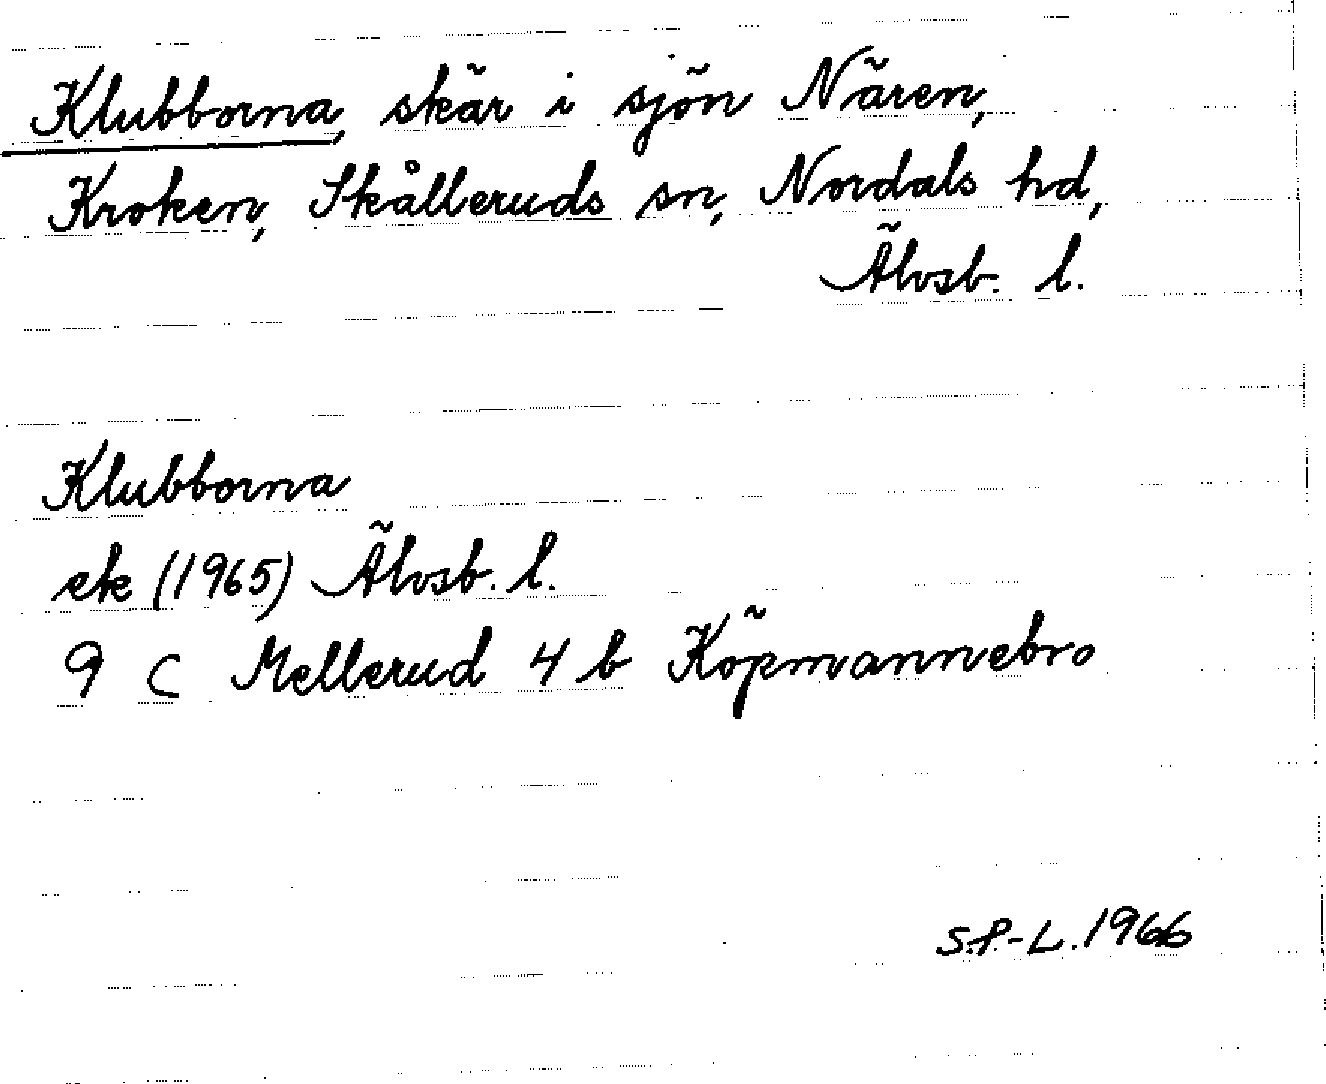 Klubborna, skär i sjön Nären,
Kroken, Skålleruds sn, Nordals hd,
Älvsb. l.
Klubborna
ek (1965) Älvsb. l.
9 C Mellerud 4 b Köpmannebro
S.P.-L. 1966